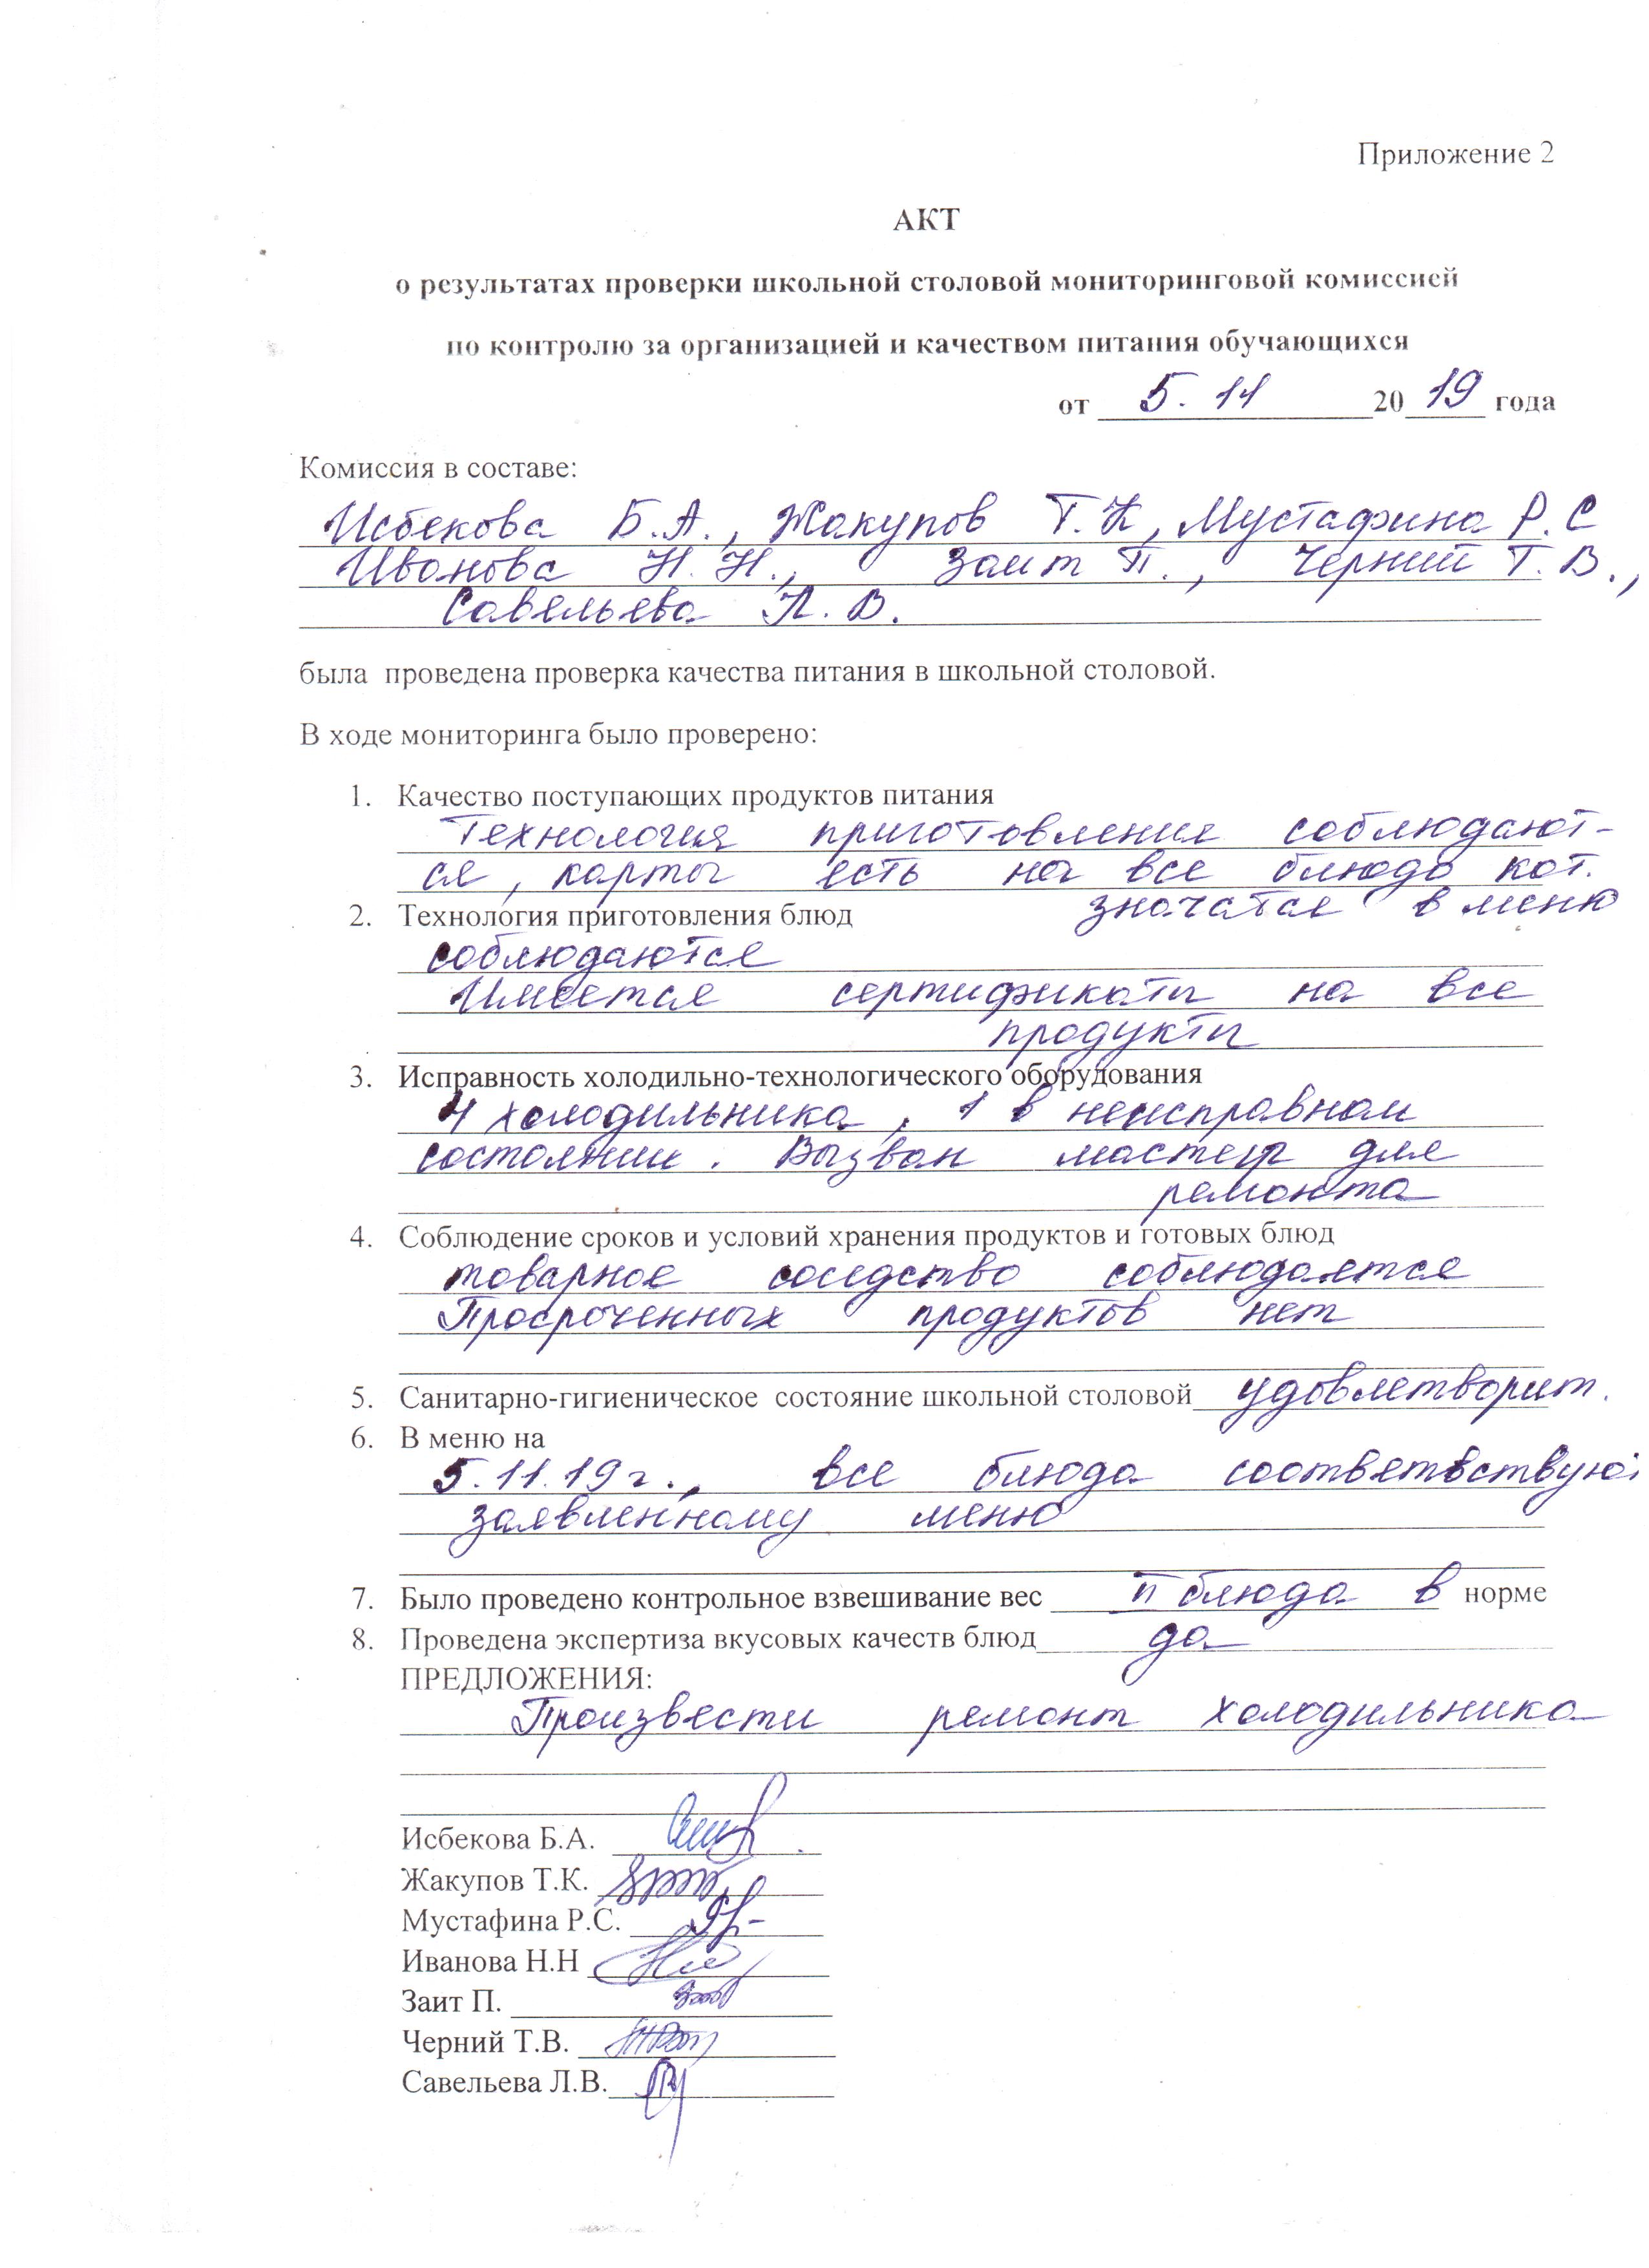 Приложение 2
АКТ
о результатах проверки школьной столовой мониторинговой комиссией
по контролю за организацией и качеством питания обучающихся
от 5. 11 2019 года
Комиссия в составе:
Исбекова Б.А., Жакупов Т.К, Мустафина Р.С
Иванова Н.Н., Заит П., Черний Т.В.,
Савельева Л.В.
была проведена проверка качества питания в школьной столовой.
В ходе мониторинга было проверено:
1. Качество поступающих продуктов питания
Технология приготовления соблюдают-
ся, карты есть на все блюда кот.
значатся в меню
2. Технология приготовления блюд
соблюдаются
Имеется сертификаты на все
продукты
3. Исправность холодильно-технологического оборудования
4 холодильника, 1 в неисправном
состоянии. Вызван мастер для
ремонта
4. Соблюдение сроков и условий хранения продуктов и готовых блюд
товарное соседство соблюдается
Просроченных продуктов нет
5. Санитарно-гигиеническое состояние школьной столовой удовлетворит.
6. В меню на
5.11.19г., все блюда соответствуют
заявленному меню
7. Было проведено контрольное взвешивание вес П блюда в норме
8. Проведена экспертиза вкусовых качеств блюд да
ПРЕДЛОЖЕНИЯ:
Произвести ремонт холодильника
Исбекова Б.А.
Жакупов Т.К.
Мустафина Р.С.
Иванова Н.Н
Заит П.
Черний Т.В.
Савельева Л.В.